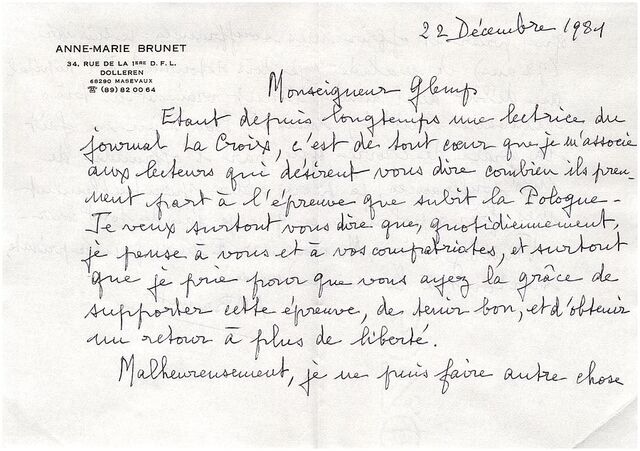 22 Décembre 1981
ANNE-MARIE BRUNET
34, RUE DE LA 1ÈRE D. F. L.
DOLLEREN
68290 MASEVAUX
☎ (89) 82 00 64
Monseigneur Glemp
Etant depuis longtemps une lectrice du
journal La Croix, c'est de tout cœur que je m'associe
aux lecteurs qui désirent vous dire combien ils pren-
nent part à l'épreuve que subit la Pologne -
Je veux surtout vous dire que, quotidiennement,
je pense à vous et à vos compatriotes, et surtout
que je prie pour que vous ayez la grâce de
supporter cette épreuve, de tenir bon, et d'obtenir
un retour à plus de liberté.
Malheureusement, je ne puis faire autre chose